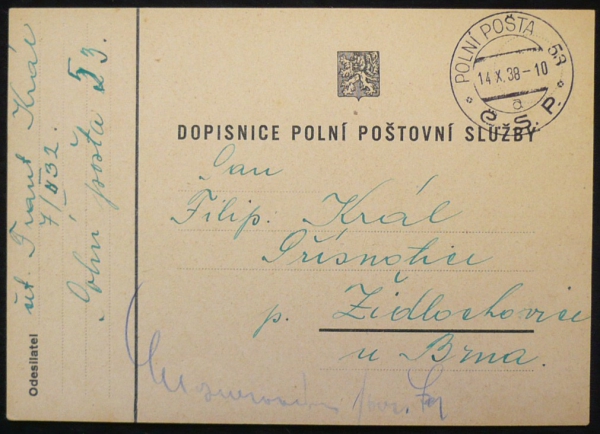 POLNÍ POŠTA 53
14.X.38-10
a
Č.S.P.
DOPISNICE POLNÍ POŠTOVNÍ SLUŽBY
Pan
Filip. Král
Přísnotice
p. Židlochovice
u Brna.
Odesílatel
čet. Frant Král
7/II 32.
Polní pošta 53.